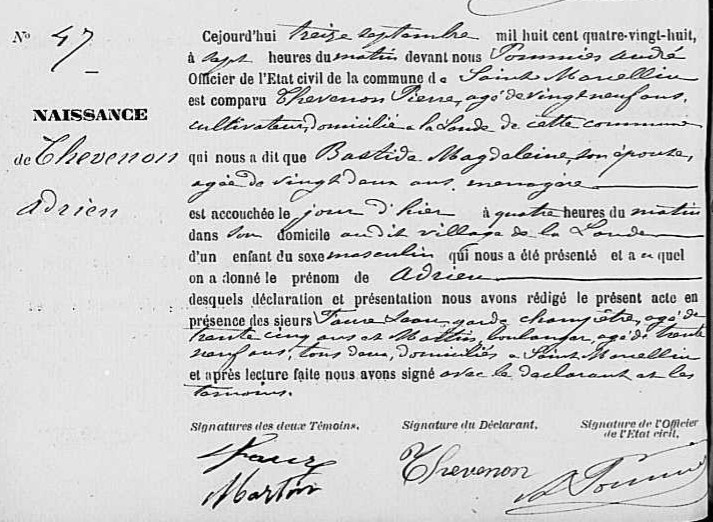 N° 47
NAISSANCE
de Thevenon
Adrien
Cejourd'hui treize septembre mil huit cent quatre-vingt-huit,
à sept heures du matin devant nous Pommier André
Officier de l'Etat civil de la commune de Saint Marcellin
est comparu Thevenon Pierre, agé de vingt neuf ans,
cultivateur, domicilié a la Londe de cette commune
qui nous a dit que Bastide Magdeleine, son épouse,
agée de vingt deux ans, menagère
est accouchée le jour d'hier à quatre heures du matin
dans son domicile audit village de la Londe
d'un enfant du sexe masculin qui nous a été présenté et auquel
on a donné le prénom de Adrien
desquels déclaration et présentation nous avons rédigé le présent acte en
présence des sieurs Faure Jean, garde champêtre, agé de
trente cinq ans et Martin, boulanger, agé de trente
neuf ans, tous deux, domiciliés a Saint Marcellin
et après lecture faite nous avons signé avec le declarant et les
temoins.
Signatures des deux Témoins. Signature du Déclarant. Signature de l'Officier
de l'Etat civil.
Faure
Thevenon
Martin